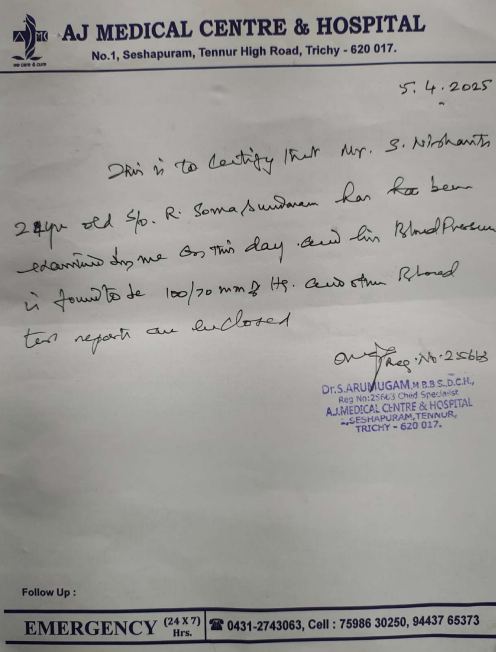 AJ MEDICAL CENTRE & HOSPITAL
No.1, Seshapuram, Tennur High Road, Trichy - 620 017.
we care & cure
5.4.2025
This is to certify that Mr. S. Nishanth
24yr old S/o. R. Somasundaram has been
examined by me on this day and his Blood Pressure
is found to be 100/70 mm of Hg. and other Blood
test reports are enclosed
Reg. No. 25663
Dr.S.ARUMUGAM,M.B.B.S.,D.C.H.,
Reg No:25663 Child Specialist
A.J.MEDICAL CENTRE & HOSPITAL
SESHAPURAM,TENNUR,
TRICHY - 620 017.
Follow Up :
EMERGENCY (24 X 7) Hrs. ☎ 0431-2743063, Cell : 75986 30250, 94437 65373